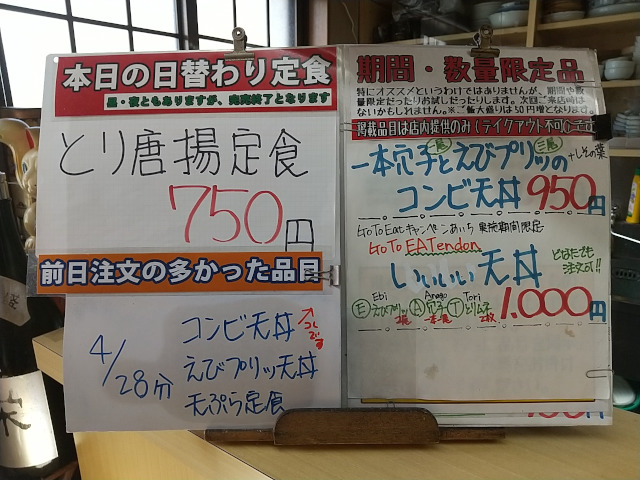 本日の日替わり定食
昼・夜ともありますが、完売終了となります
とり唐揚定食
750円
前日注文の多かった品目
4/28分
コンビ天丼
えびプリッ天丼
天ぷら定食
期間・数量限定品
特にオススメというわけではありませんが、期間や数
量限定だったりお試しだったりします。次回ご来店時は
ないかもしれません。※ご飯大盛りは50円増となります。
掲載品目は店内提供のみ(テイクアウト不可)です
一本穴子とえびプリッの
一尾 三尾
+しその葉
コンビ天丼 950円
GoToEatキャンペーンあいち 実施期間限定
GoTo EATendon
いいいい天丼
どなたでも
注文可!!
Ebi Anago Tori
Ⓔえびプリッ Ⓐ穴子 Ⓣとりムネ
一本一尾 2枚
1.000円